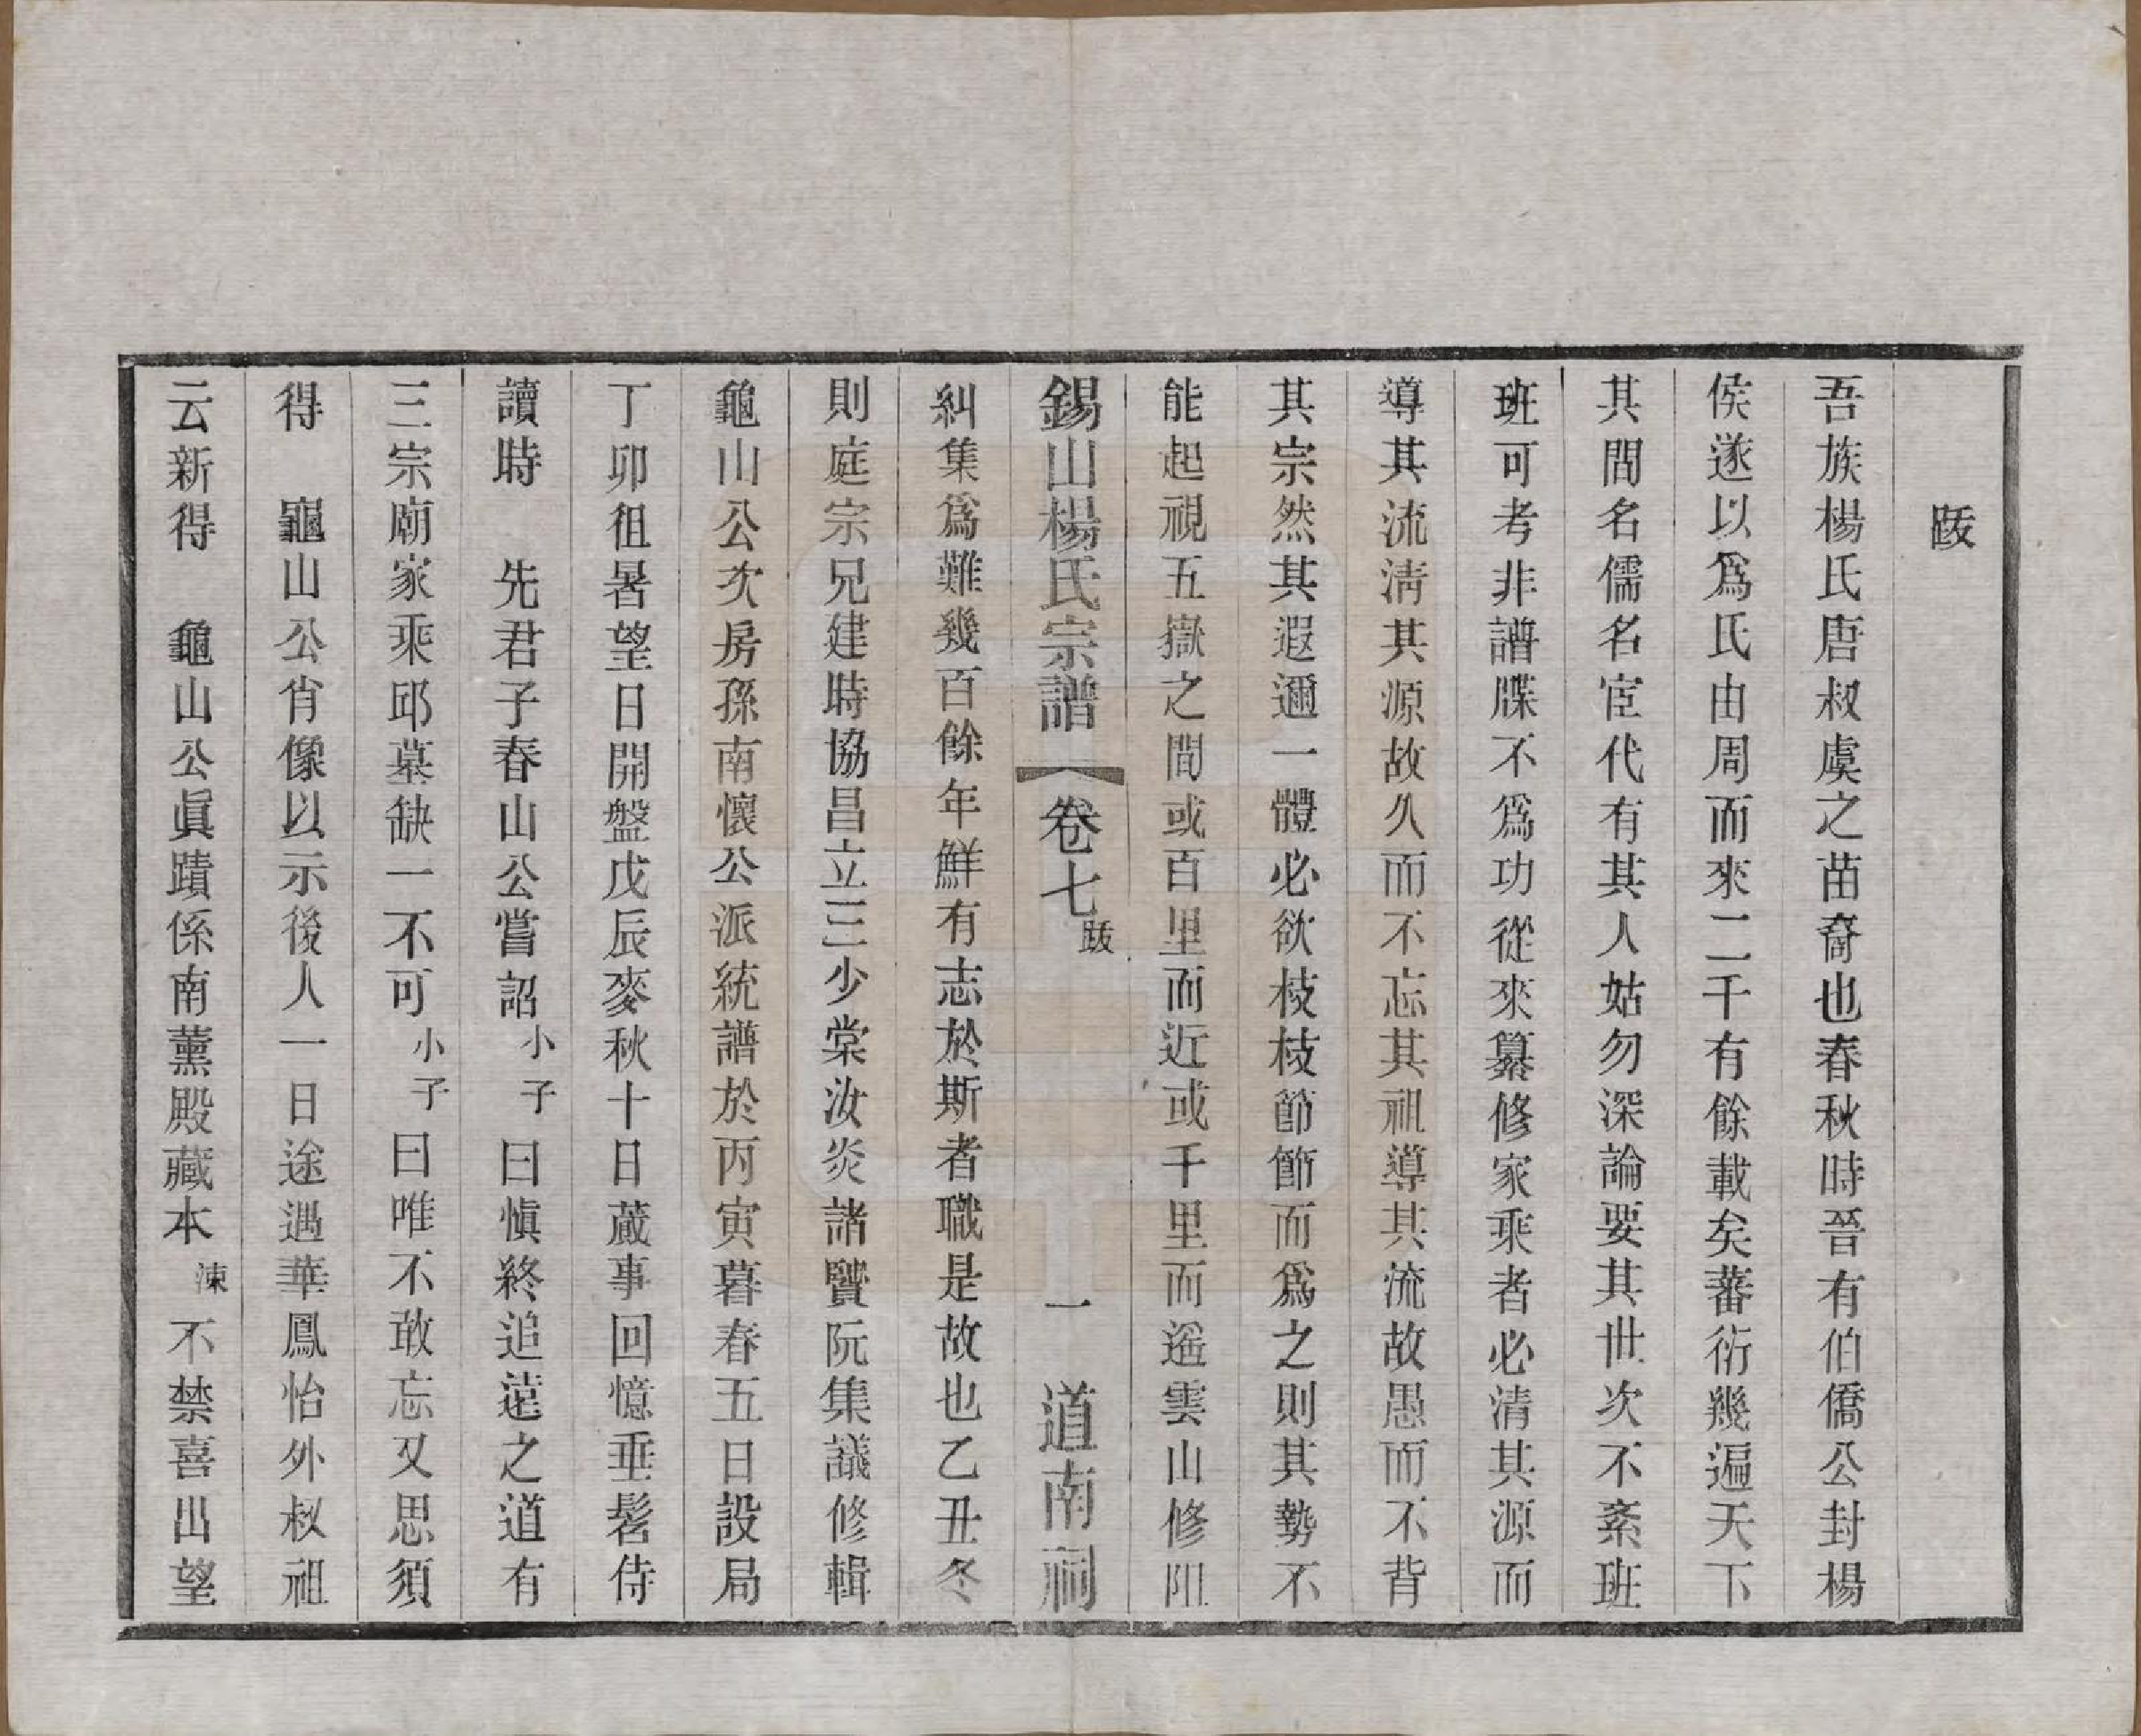 跋
吾族楊氏唐叔虞之苗裔也春秋時晉有伯僑公封楊
侯遂以爲氏由周而來二千有餘載矣蕃衍幾遍天下
其間名儒名宦代有其人姑勿深論要其世次不紊班
班可考非譜牒不爲功從來纂修家乘者必清其源而
導其流清其源故久而不忘其祖導其流故愚而不背
其宗然其遐邇一體必欲枝枝節節而爲之則其勢不
能起視五嶽之間或百里而近或千里而遥雲山修阻
錫山楊氏宗譜 卷七 跋 一 道南祠
糾集爲難幾百餘年鮮有志於斯者職是故也乙丑冬
則庭宗兄建時協昌立三少棠汝炎諸賢阮集議修輯
龜山公次房孫南懷公派統譜於丙寅暮春五日設局
丁卯徂暑望日開盤戊辰麥秋十日蕆事回憶垂髫侍
讀時 先君子春山公嘗詔小子曰愼終追遠之道有
三宗廟家乘邱墓缺一不可小子曰唯不敢忘又思須
得 龜山公肖像以示後人一日途遇華鳳怡外叔祖
云新得 龜山公眞蹟係南薰殿藏本涷不禁喜出望